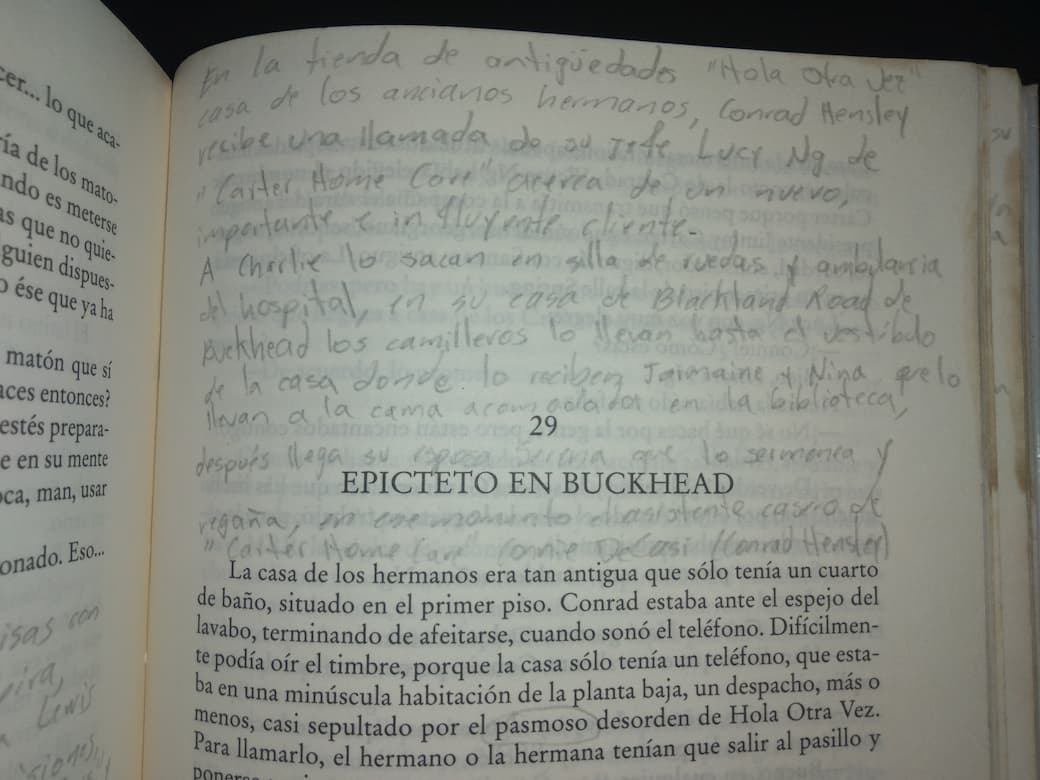 cer... lo que aca-
ría de los mato-
ndo es meterse
as que no quie-
guien dispues-
o ése que ya ha
matón que sí
aces entonces?
estés prepara-
e en su mente
oca, man, usar
onado. Eso...
isas con
Lewis
En la tienda de antigüedades "Hola Otra Vez"
casa de los ancianos hermanos, Conrad Hensley
recibe una llamada de su Jefe Lucy Ng de
"Carter Home Care" acerca de un nuevo,
importante e influyente cliente.
A Charlie lo sacan en silla de ruedas y ambulancia
del hospital, en su casa de Blackland Road de
Buckhead los camilleros lo llevan hasta el vestíbulo
de la casa donde lo reciben Jarmaine y Nina que lo
llevan a la cama acomodada en la biblioteca,
29
después llega su esposa Serena que lo sermonea y
EPICTETO EN BUCKHEAD
regaña, en ese momento el asistente casero de
"Carter Home Care" Connie DeCasi (Conrad Hensley)
La casa de los hermanos era tan antigua que sólo tenía un cuarto
de baño, situado en el primer piso. Conrad estaba ante el espejo del
lavabo, terminando de afeitarse, cuando sonó el teléfono. Difícilmen-
te podía oír el timbre, porque la casa sólo tenía un teléfono, que esta-
ba en una minúscula habitación de la planta baja, un despacho, más o
menos, casi sepultado por el pasmoso desorden de Hola Otra Vez.
Para llamarlo, el hermano o la hermana tenían que salir al pasillo y